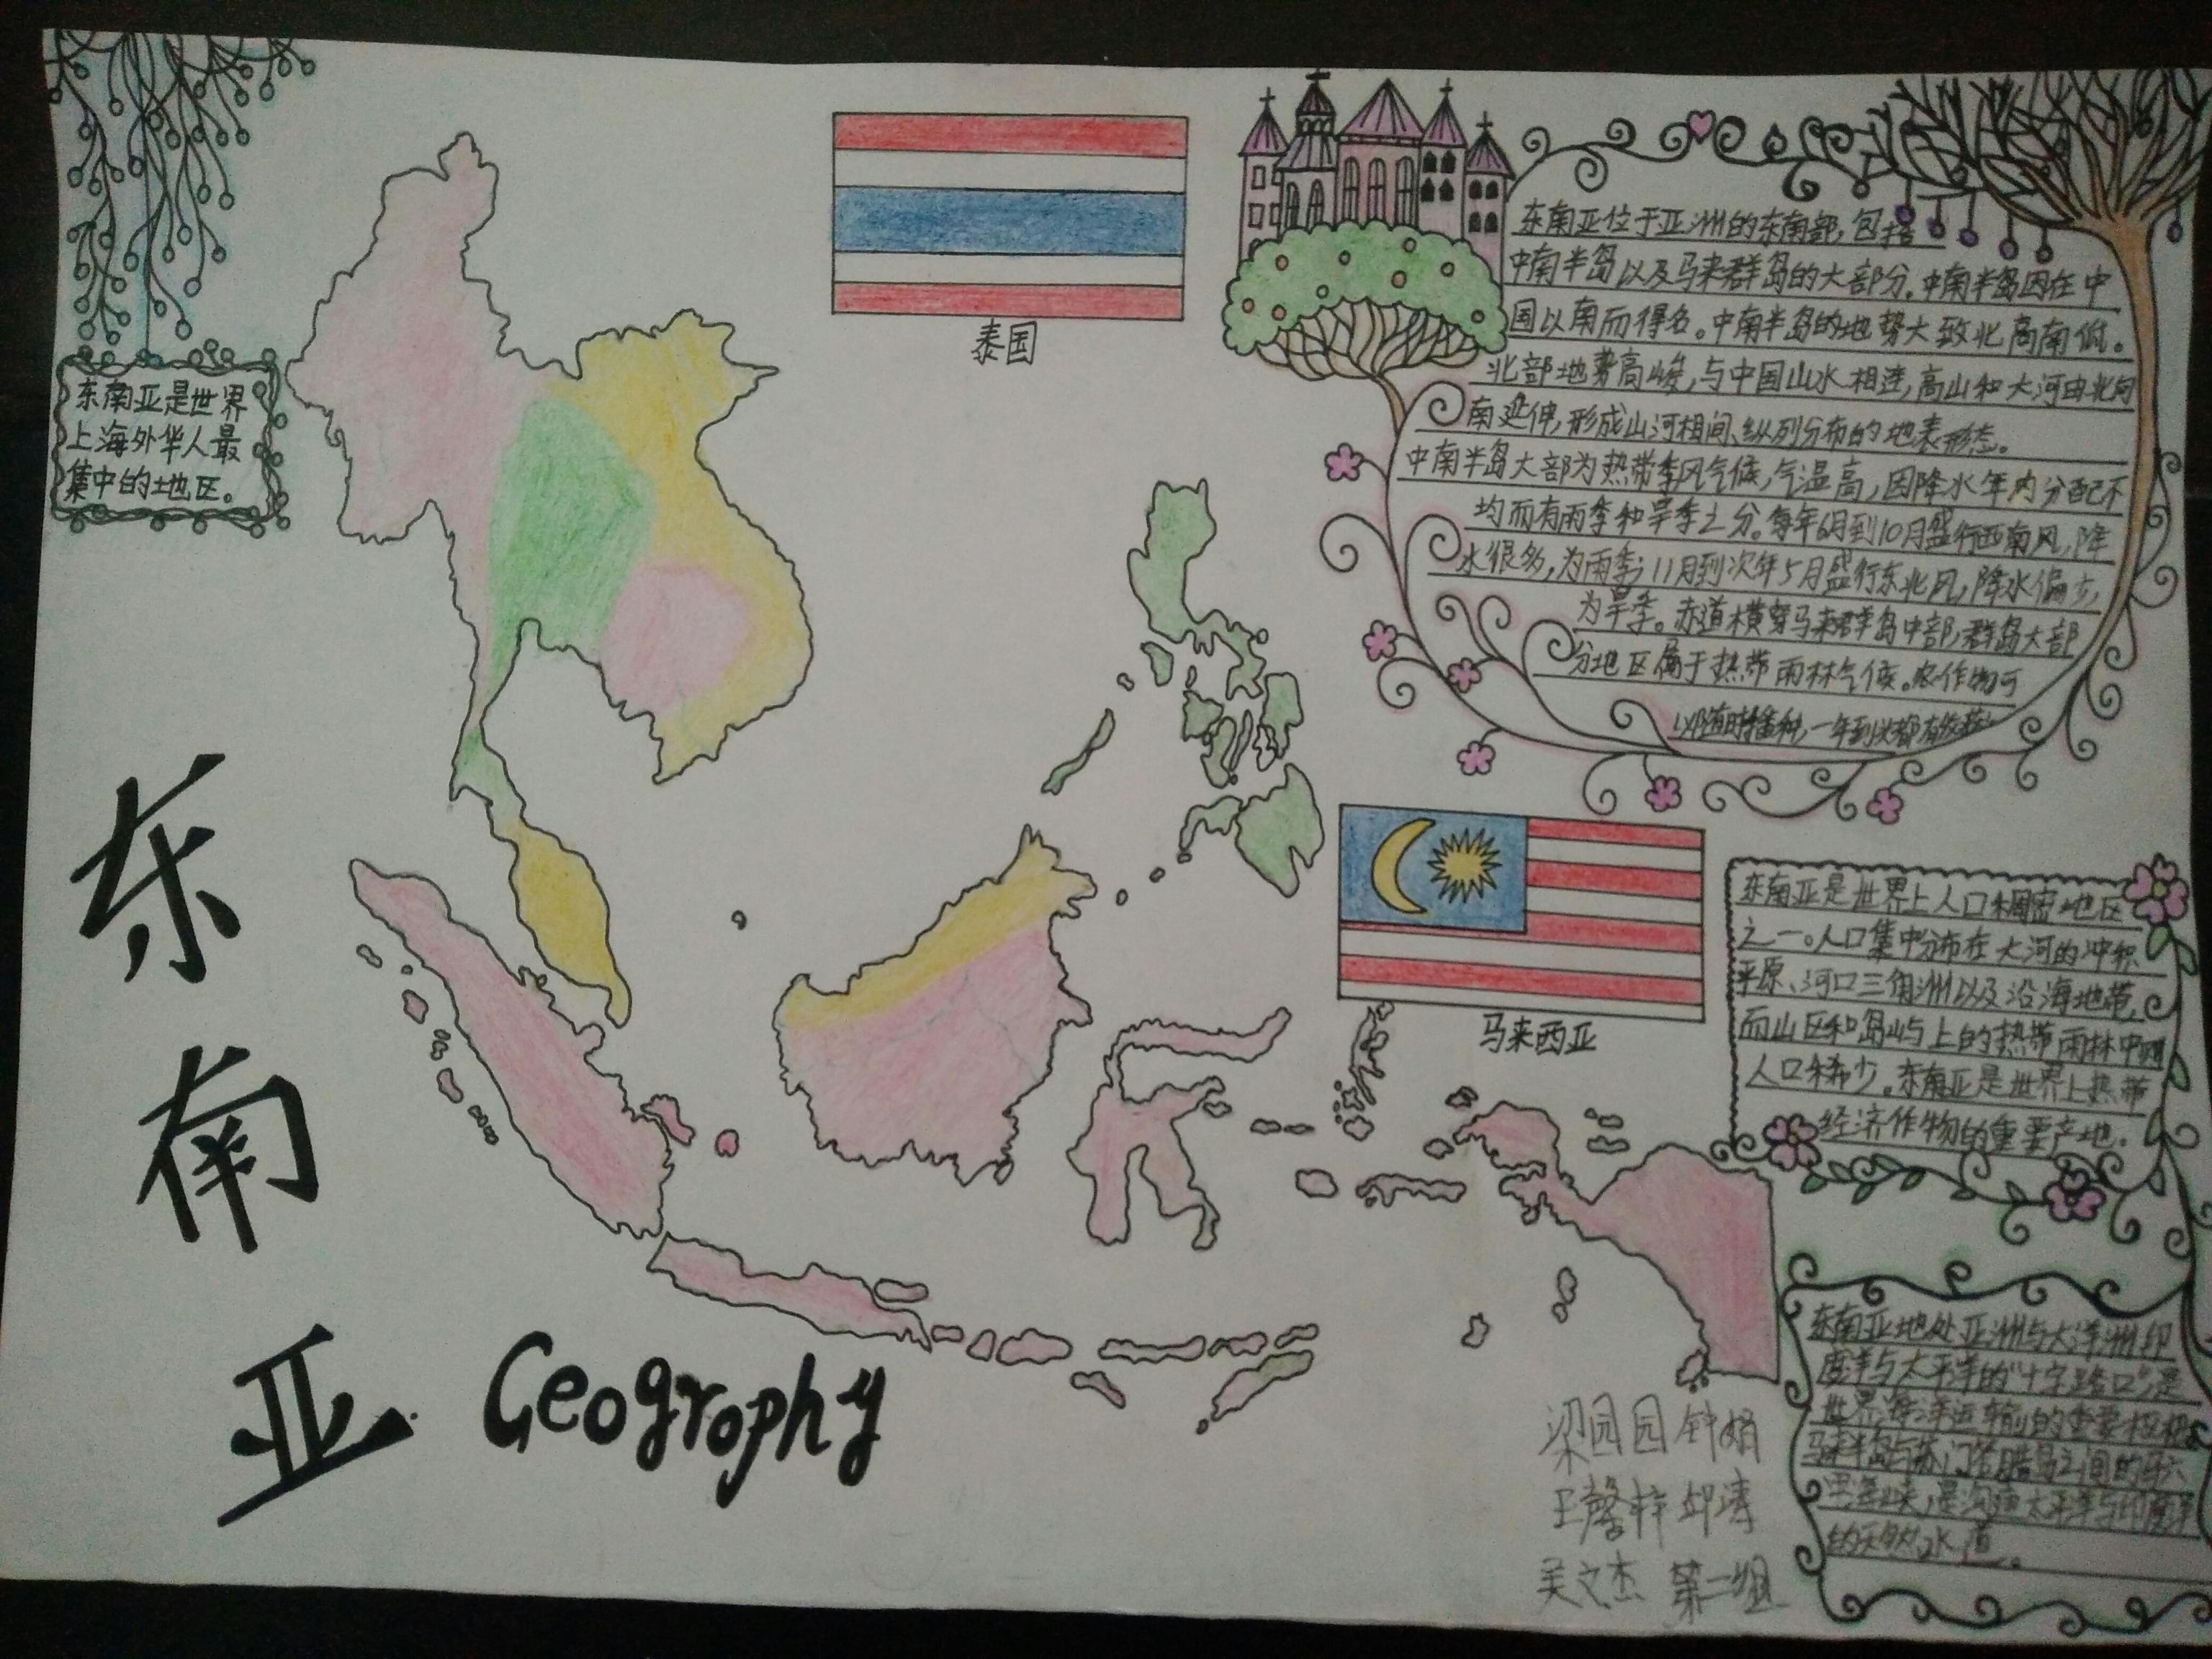 东南亚是世界
上海外华人最
集中的地区。
泰国
东南亚位于亚洲的东南部,包括
中南半岛以及马来群岛的大部分。中南半岛因在中
国以南而得名。中南半岛的地势大致北高南低。
北部地势高峻,与中国山水相连,高山和大河由北向
南延伸,形成山河相间、纵列分布的地表形态。
中南半岛大部为热带季风气候,气温高,因降水年内分配不
均而有雨季和旱季之分。每年6月到10月盛行西南风,降
水很多,为雨季;11月到次年5月盛行东北风,降水偏少,
为旱季。赤道横穿马来群岛中部,群岛大部
分地区属于热带雨林气候。农作物可
以随时播种,一年到头都有收获
马来西亚
东南亚是世界上人口稠密地区
之一。人口集中分布在大河的冲积
平原、河口三角洲以及沿海地带,
而山区和岛屿上的热带雨林中则
人口稀少。东南亚是世界上热带
经济作物的重要产地。
东南亚地处亚洲与大洋洲印
度洋与太平洋的“十字路口”,是
世界海洋运输的重要枢纽
马来半岛与苏门答腊岛之间的马六
甲海峡,是沟通太平洋与印度洋
的天然水道。
东
南
亚
Geography
梁园园 钟娟
王馨梓 邱涛
吴文杰 第二组